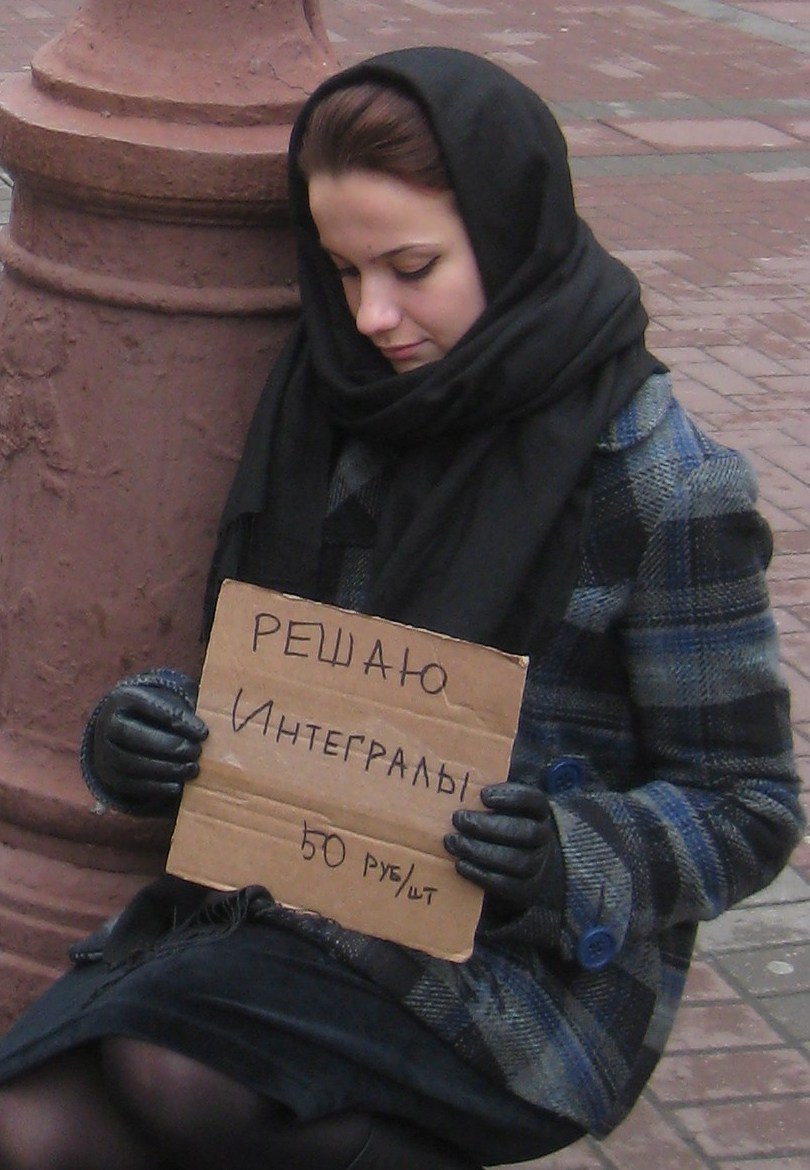 РЕШАЮ
ИНТЕГРАЛЫ
50 РУБ/ШТ